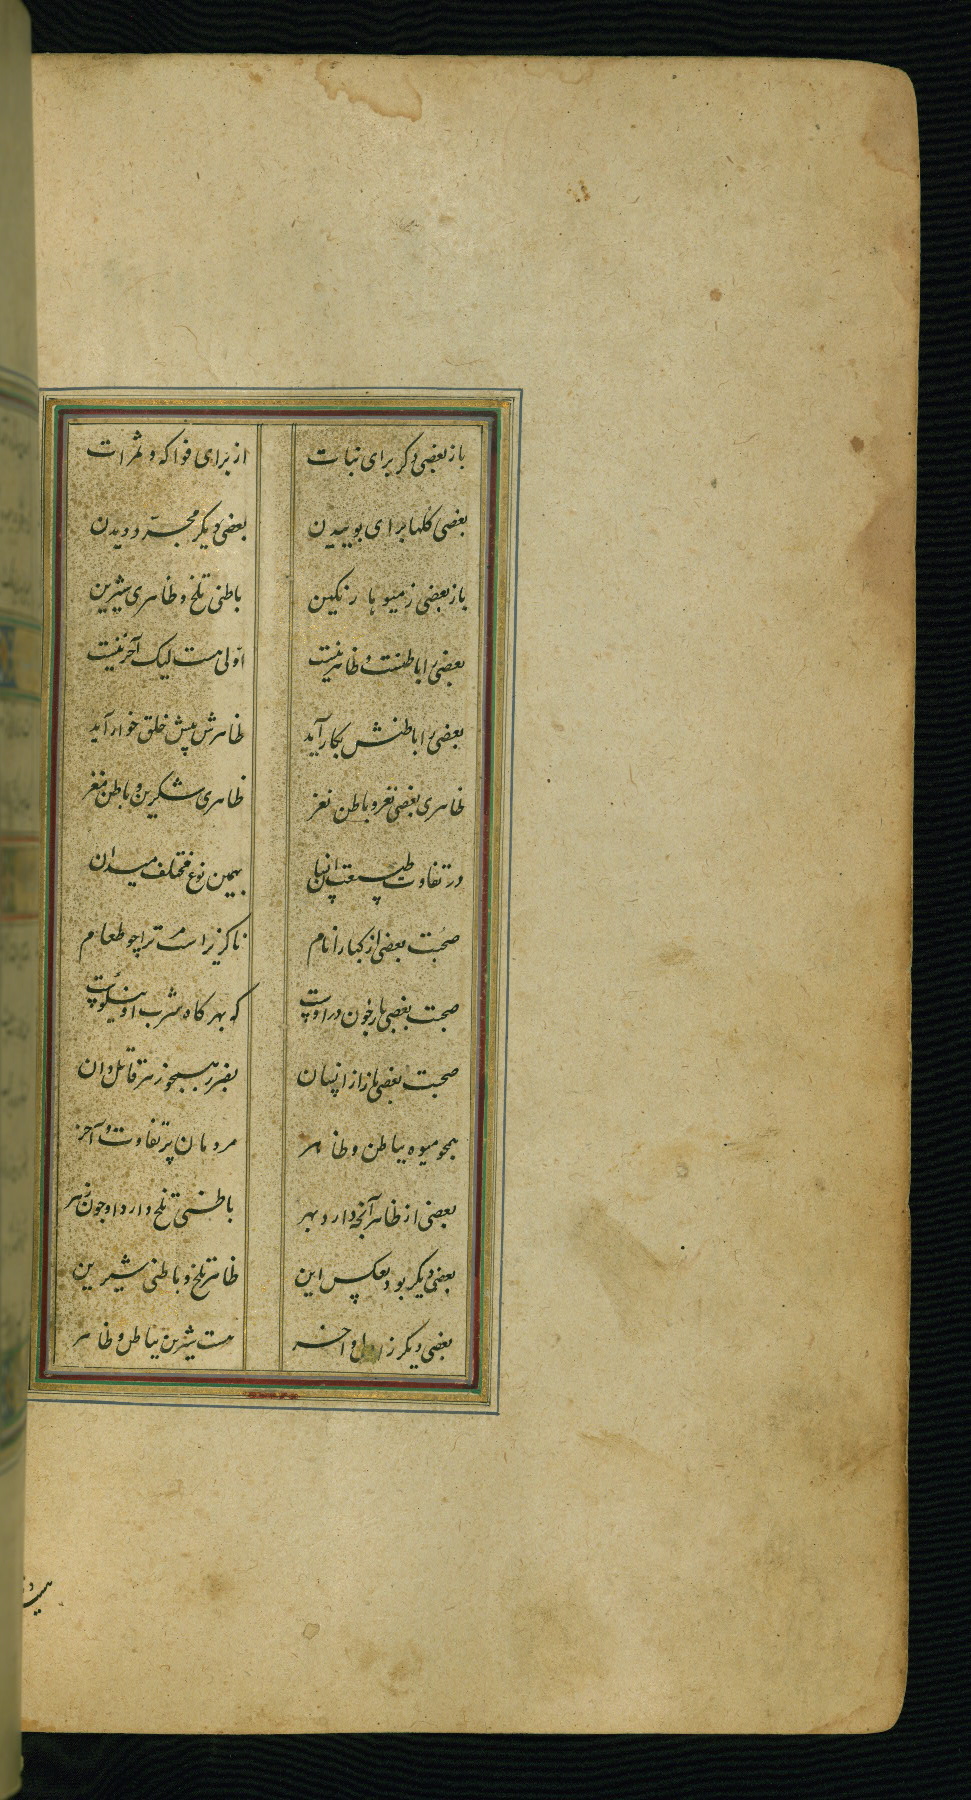 باز بعضی دکر برای نبات از برای فواکه و ثمرات
بعضی کلها برای بوییدن بعضی دیکر مجرد دیدن
باز بعضی ز میوها رنکین باطنی تلخ و ظاهری شیرین
بعضی را باطنست و ظاهر نیست اولی هست لیک آخر نیست
بعضی را باطنش بکار آید ظاهرش پیش خلق خوار آید
ظاهری بعضی نغز و باطن نغز ظاهری شکرین و باطن مغز
در تفاوت طبیعت انسان بهمین نوع مختلف میدان
صحبت بعضی از کبار انام ناکزیر است مر ترا چو طعام
صحبت بعضی بار خون داروست که بهر کاه شرب او نیکوست
صحبت بعضی باز از انسان بضرر همچو زهر قاتل دان
همچو میوه بباطن و ظاهر مردمان پر تفاوت و آخر
بعضی از ظاهر آنچه دارد بهر باطنی تلخ دارد او چون زهر
بعضی دیکر بود بعکس این ظاهر تلخ و باطنی شیرین
بعضی دیکر ز اول و آخر هست شیرین بباطن و ظاهر